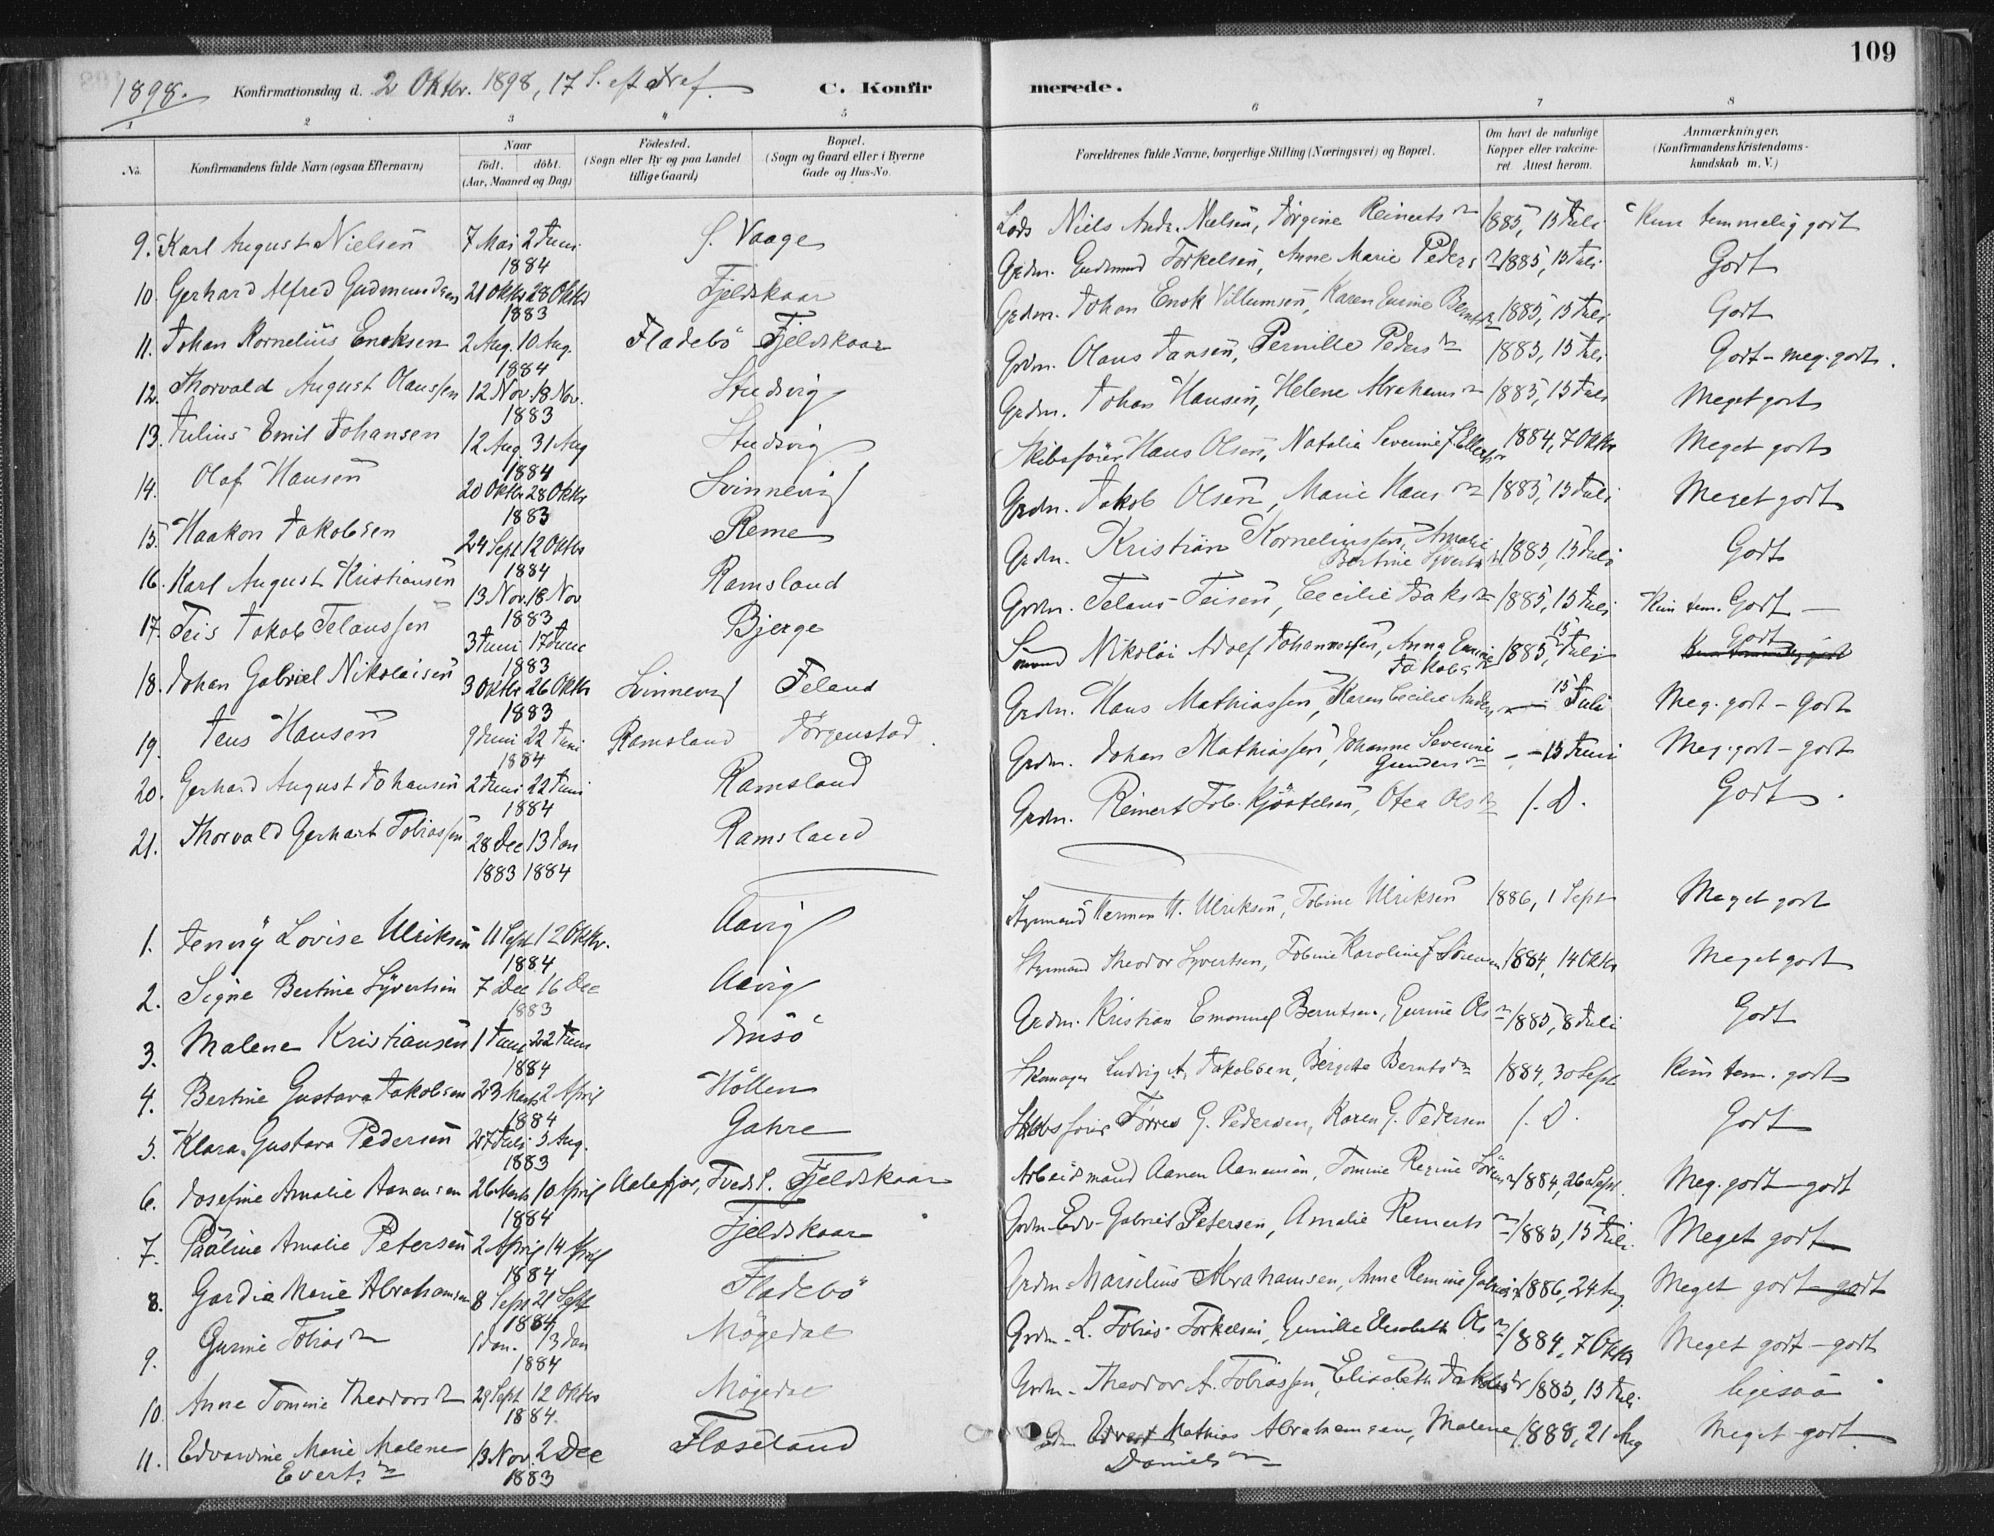 109
1898. Konfirmationsdag d. 2 Oktbr. 1898, 17 S. eft Tref. C. Konfir merede.
1 2 3 4 5 6 7 8
No. Konfirmandens fulde Navn (ogsaa Efternavn) Naar födt. döbt. (Aar, Maaned og Dag)
Födested. (Sogn eller By og paa Landet tillige Gaard)
Bopæl. (Sogn og Gaard eller i Byerne Gade og Hus-No.
Forældrenes fulde Navne, borgerlige Stilling (Næringsvei) og Bopæl.
Om havt de naturlige Kopper eller vakcineret. Attest herom.
Anmærkninger. (Konfirmandens Kristendomskundskab m. V.)
9. Karl August Nielsen 7 Mai 2 Juni 1884 S. Vaage Lods Niels Andr. Nielsen, Jörgine Reinerts 1885, 15 Juli Kun temmelig godt
10. Gerhard Alfred Gudmundsen 21 Oktbr 28 Oktbr 1883 Fjeldskaar Grdm. Gudmund Torkelsen, Anne Marie Peders 1885, 15 Juli Godt
11. Johan Kornelius Enoksen 2 Aug. 10 Aug. 1884 Fladebö Fjeldskaar Grdm. Johan Enok Villumsen, Karen Gurine 1885, 15 Juli Godt
12. Thorvald August Olaussen 12 Nov. 18 Nov. 1883 Studvig Grdm. Olaus Jansen, Pernille Peders 1885, 15 Juli Godt - meg. godt.
13. Julius Emil Johansen 12 Aug. 31 Aug 1884 Studvig Grdm. Johan Hansen, Helene Abrahams 1885, 15 Juli Meget godt
14. Olaf Hansen 20 Oktbr 28 Oktbr 1883 Svinnevig Skibsfører Hans Olsen, Natalia Severine 1884, 7 Oktbr Meget godt
15. Haakon Jakobsen 24 Sept 12 Oktbr 1884 Reme Grdm. Jakob Olsen, Marie Hans 1885, 15 Juli Meget godt
16. Karl August Kristiansen 13 Nov. 18 Nov 1883 Ramsland Grdm. Kristian Korneliussen, Amalie Bertine Syverts 1885, 15 Juli Godt
17. Teis Jakob Telaussen 3 Juni 17 Juni 1883 Bjerge Grdm. Telaus Teisen, Cecilie Isaks 1885, 15 Juli Kun tem. Godt
18. Johan Gabriel Nikolaisen 3 Oktbr 26 Oktbr 1883 Svinnevig Feland Nikolai Adolf Johannessen, Anna Jakobs 1885, 15 Juli Godt
19. Jens Hansen 9 Juni 22 Juni 1884 Ramsland Jörgenstad. Grdm. Hans Mathiassen, Karen Cecilie 15 Juli Meg. godt - godt
20. Gerhard August Johansen 2 Juni 22 Juni 1884 Ramsland Grdm. Johan Mathiassen, Johanne Severine Gunders - - 15 Juni Meg. godt - godt
21. Thorvald Gerhart Tobiassen 28 Dec 13 Jan 1883 1884 Ramsland Grdm. Reinert Tob. Kjöstelsen, Otea Ols s. D. Godt.
1. Jenny Lovise Ulriksen 11 Sept 12 Oktbr. 1884 Aavig Styrmand Herman H. Ulriksen, Tobine Ulriksen 1886, 1 Sept Meget godt
2. Signe Bertine Syvertsen 7 Dec 16 Dec 1883 Aavig Styrmand Theodor Syvertsen, Tobine Karoline 1884, 14 Oktbr Meget godt
3. Malene Kristiansen 1 Juni 22 Juni 1884 Grdm. Kristian Emanuel Berntsen, Gurine Ols 1885, 8 Juli Godt
4. Bertine Gustava Jakobsen 23 Marts 2 April 1884 Höllen Skomager Ludvig A. Jakobsen, Bergitte Bernts 1884, 30 Sept Kun tem. godt
5. Klara Gustava Pedersen 27 Juli 5 Aug. 1883 Gahre Skibsfører Tørres G. Pedersen, Karen G. Pedersen s. D. Godt
6. Josefine Amalie Aanensen 26 Marts 10 April 1884 Aalefjær, Tveds S. Fjeldskaar Arbeidsmand Aanen Aanensen, Tomine Regine 1884, 26 Sept. Meg. godt - godt
7. Pauline Amalie Petersen 2 April 14 April 1884 Fjeldskaar Grdm. Edv. Gabriel Petersen, Amalie Reinerts 1885, 15 Juli. Meget godt
8. Gardia Marie Abrahamsen 8 Sept 21 Sept 1884 Fladebö Grdm. Marselius Abrahamsen, Anne Remine 1886, 24 Aug. Meget godt - godt
9. Gurine Tobias 1 Jan. 13 Jan 1884 Mögedal Grdm. L. Tobias Torkelsen, Gunille Elisabeth Ols 1884, 7 Oktbr Meget godt - godt
10. Anne Tomine Theodors 29 Sept 12 Oktbr 1884. Mögedal Grdm. Theodor A. Tobiassen, Elisabeth Jakobs 1885, 15 Juli. ligesaa
11. Edvardine Marie Malene Everts 13 Nov. 2 Dec 1883 Flaseland Mathias Abrahamsen, Malene Daniels 1888, 21 Aug Meget godt